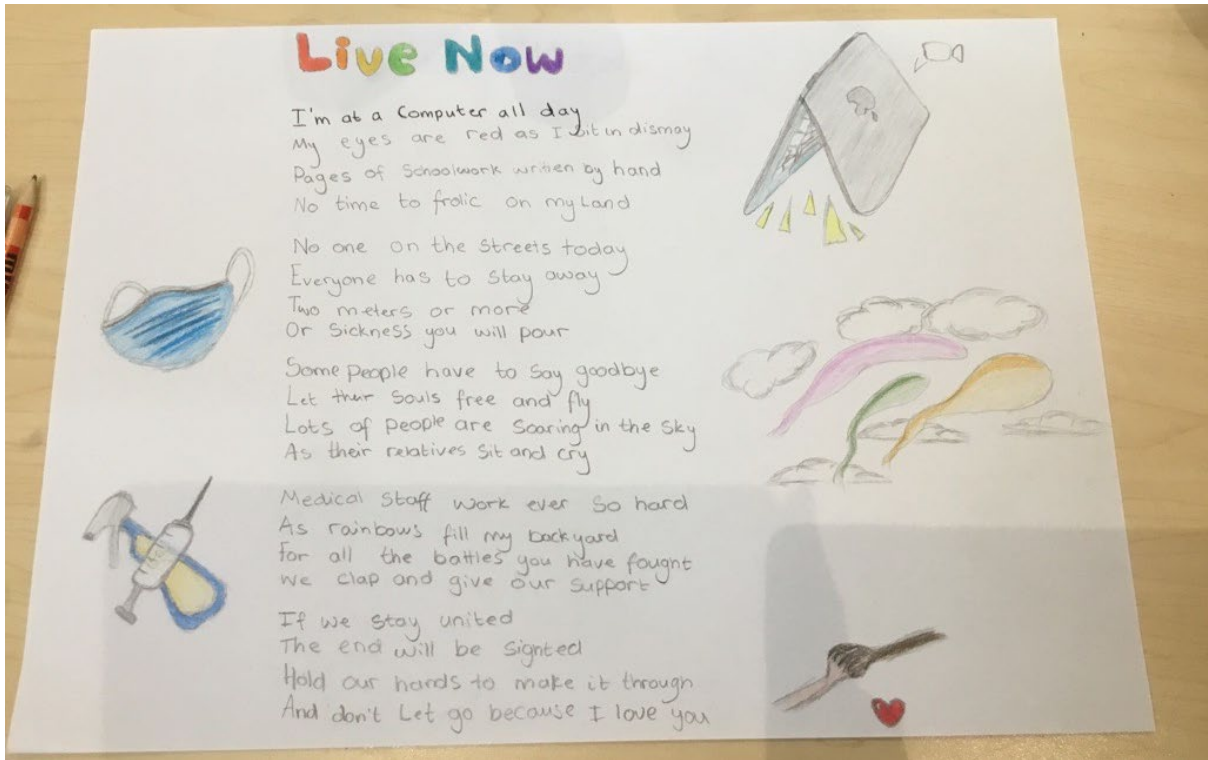 Live Now
I'm at a Computer all day
My eyes are red as I sit in dismay
Pages of Schoolwork written by hand
No time to frolic on my Land
No one on the streets today
Everyone has to stay away
Two meters or more
Or Sickness you will pour
Some people have to say goodbye
Let their Souls free and fly
Lots of people are Soaring in the Sky
As their relatives Sit and cry
Medical Staff work ever so hard
As rainbows fill my backyard
for all the battles you have fought
we clap and give our support
If we stay united
The end will be signted
Hold our hands to make it through
And don't Let go because I love you